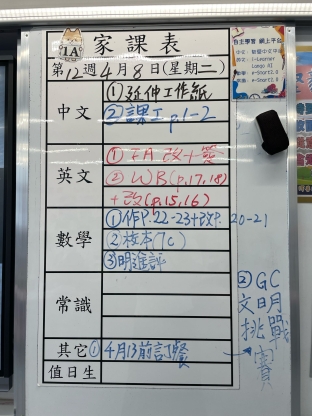 1A 家課表
第12週4月8日(星期二)
中文
①延伸工作紙
②課工p.1-2
英文
①FA改+簽
②WB(p.17,18)
+改(p.15,16)
數學
①作P.22-23+改P.20-21
②校本(7c)
③明進評
常識
其它
①4月13前訂餐
值日生
②GC
文明
挑戰
賽
自主學習 網上平台